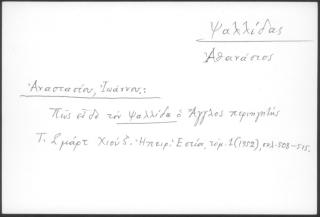 Ψαλλίδας
Ἀθανάσιος
Ἀναστασίου, Ἰωάννου,:
Πῶς εἶδε τὸν Ψαλλίδα ὁ Ἄγγλος περιηγητὴς
Τ. Σμάρτ Χιούζ. Ἠπειρ. Ἑστία, τόμ. 1 (1952), σελ. 508-515.